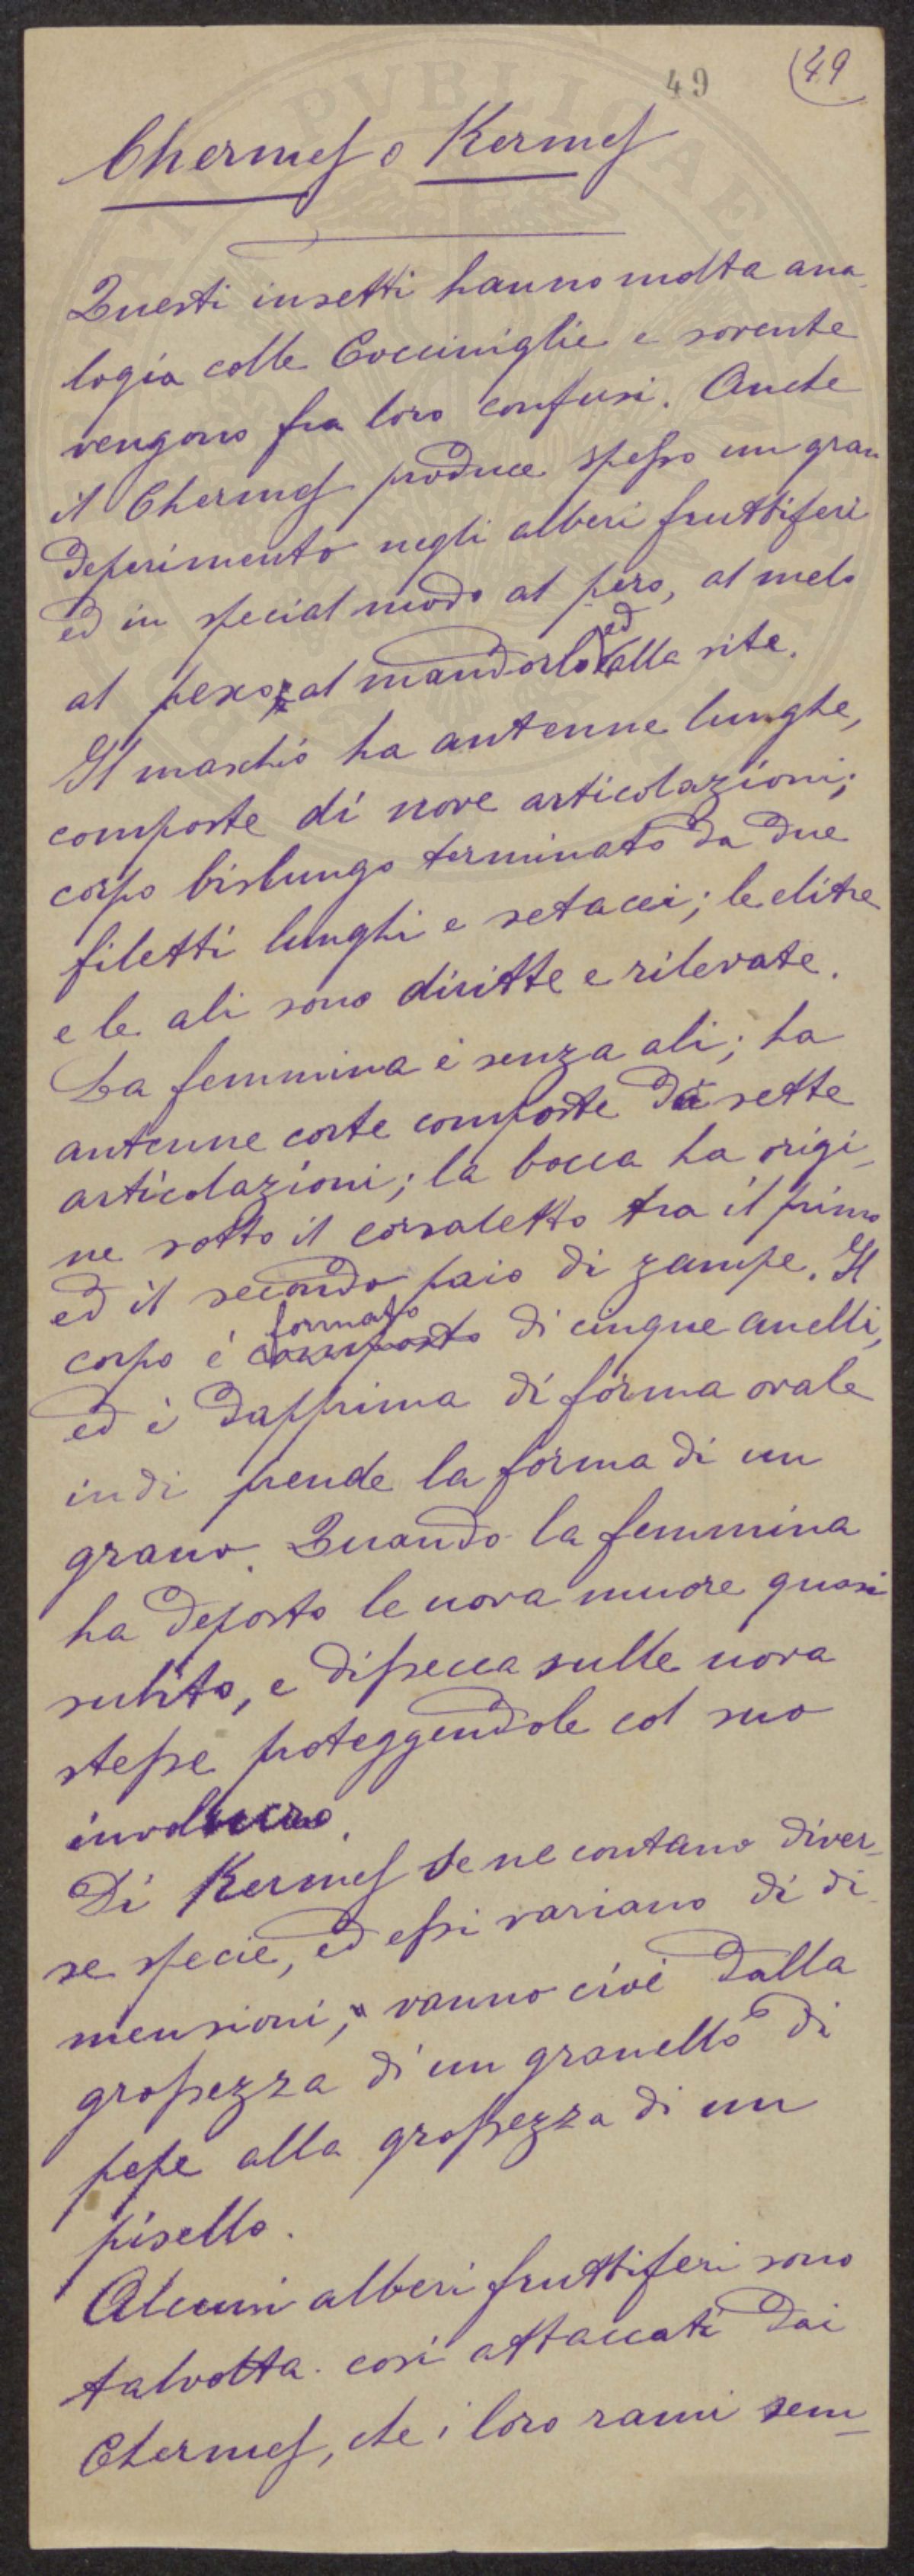 49 (49
Chermes o Kermes
Questi insetti hanno molta ana-
logia colle Cocciniglie e sovente
vengono fra loro confusi. Anche
il Chermes produce spesso un gran
deperimento negli alberi fruttiferi
ed in special modo al pero, al melo
al pesco, al mandorlo ed alla vite.
Il maschio ha antenne lunghe,
composte di nove articolazioni;
corpo bislungo terminato da due
filetti lunghi e setacei; le elitre
e le ali sono diritte e rilevate.
La femmina è senza ali; ha
antenne corte composte di sette
articolazioni; la bocca ha origi-
ne sotto il corsaletto tra il primo
ed il secondo paio di zampe. Il
corpo è composto formato di cinque anelli,
ed è dapprima di forma ovale
indi prende la forma di un
grano. Quando la femmina
ha deposto le uova muore quasi
subito, e dissecca sulle uova
stesse proteggendole col suo
involucro.
Di Kermes se ne contano diver-
se specie, ed essi variano di di-
mensioni, vanno cioè dalla
grossezza di un granello di
pepe alla grossezza di un
pisello.
Alcuni alberi fruttiferi sono
talvolta così attaccati dai
Chermes, che i loro rami sem-